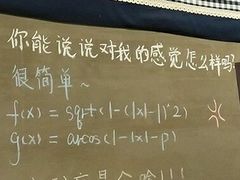 你能说说对我的感觉怎么样吗?
很简单~
f(x)=sqrt(1-(|x|-1)^2)
g(x)=arcos(1-|x|-p)